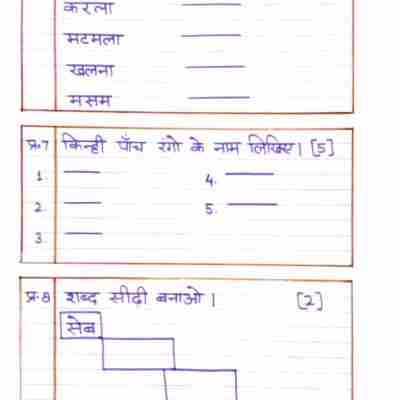 करला
मटमला
खलना
मसम
प्र.7 किन्ही पाँच रंगो के नाम लिखिए। [5]
1. 4.
2. 5.
3.
प्र.8 शब्द सीढ़ी बनाओ। [2]
सेब